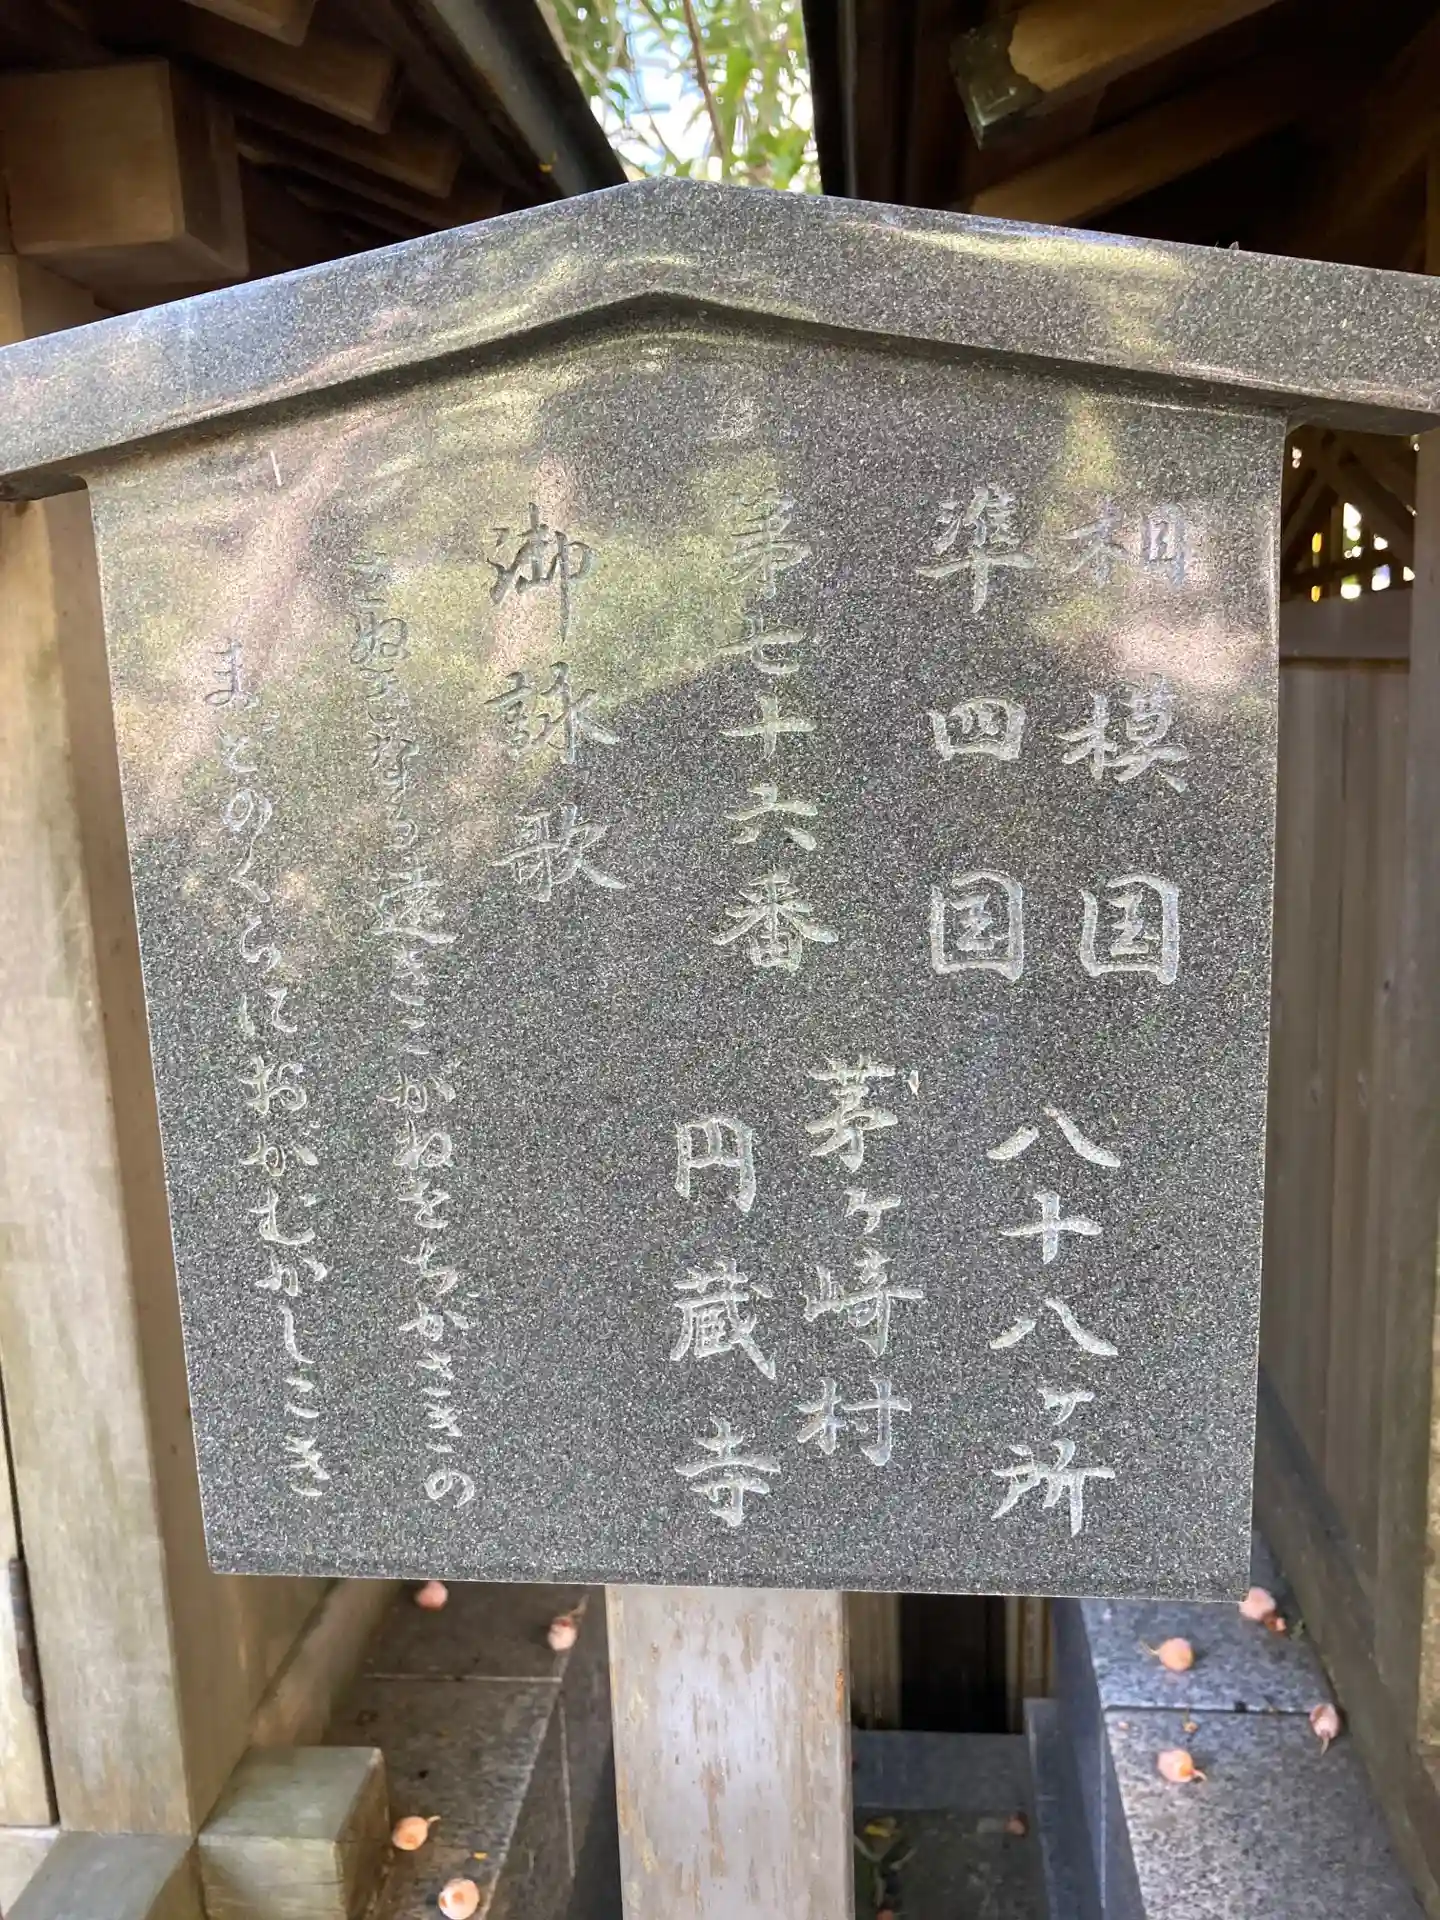 相模国
準四国
八十八ヶ所
第七十六番
茅ヶ崎村
円蔵寺
御詠歌
さぬきなる遠きこがねをちがさきの
まどのくらにおがむかしこき